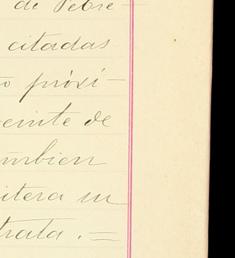 de Febre-
citadas
o próxi-
veinte de
ambien
itera su
trata. =